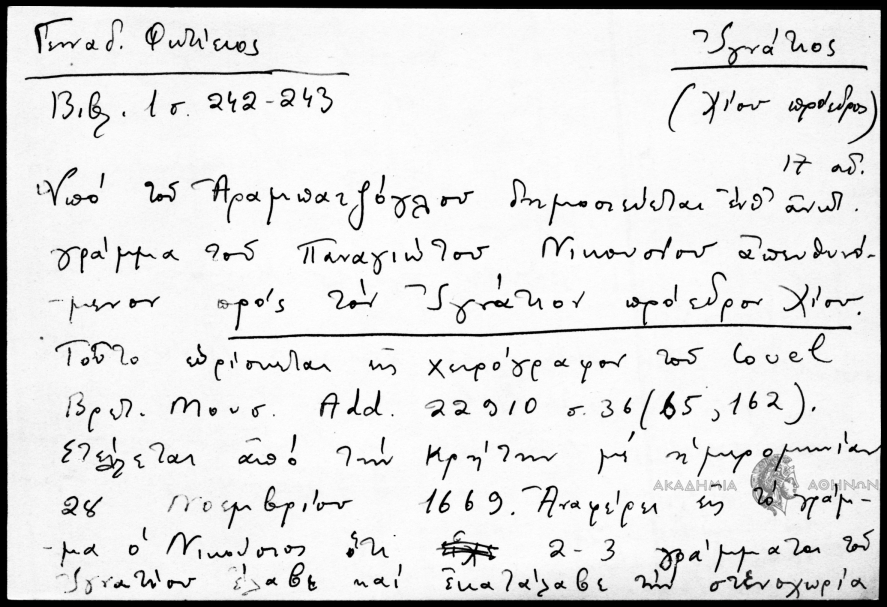 Γενναδ. Φωτίειος
Ἰγνάτιος
Βιβλ. 1 σ. 242-243
(Χίου πρόεδρος)
17 αἰ.
Ὑπό τοῦ Ἀραμπατζόγλου δημοσιεύεται ἐνθ' ἀνωτ.
γράμμα τοῦ Παναγιώτου Νικουσίου ἀπευθυνό-
-μενον πρός τόν Ἰγνάτιον πρόεδρον Χίου.
Τοῦτο εὑρίσκεται εἰς χειρόγραφον τοῦ Covel
Βρετ. Μουσ. Add. 22910 σ. 36 (65, 162).
Στέλλεται ἀπό τήν Κρήτην μέ ἡμερομηνίαν
ΑΚΑΔΗΜΙΑ ΑΘΗΝΩΝ
28 Νοεμβρίου 1669. Ἀναφέρει εἰς τό γράμ-
-μα ὁ Νικούσιος ὅτι 2-3 γράμματα τοῦ
Ἰγνατίου ἔλαβε καί ἐκατάλαβε τήν στενοχωρία